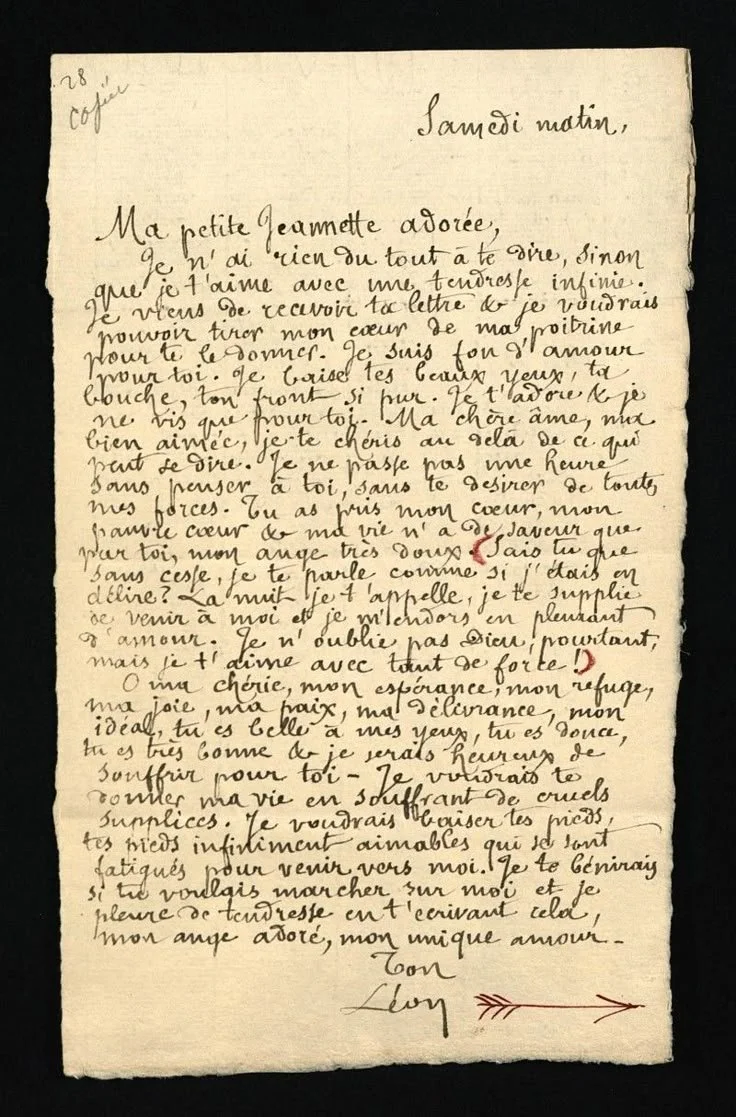 28
Copier
Samedi matin,
Ma petite Jeannette adorée,
Je n'ai rien du tout à te dire, sinon
que je t'aime avec une tendresse infinie.
Je viens de recevoir ta lettre & je voudrais
pouvoir tirer mon cœur de ma poitrine
pour te le donner. Je suis fou d'amour
pour toi. Je baise tes beaux yeux, ta
bouche, ton front si pur. Je t'adore & je
ne vis que pour toi. Ma chère âme, ma
bien aimée, je te chéris au delà de ce qui
peut se dire. Je ne passe pas une heure
sans penser à toi, sans te desirer de toutes
mes forces. Tu as pris mon cœur, mon
pauvre cœur & ma vie n'a de saveur que
par toi, mon ange très doux. (Sais tu que
sans cesse, je te parle comme si j'étais en
délire? La nuit je t'appelle, je te supplie
de venir à moi et je m'endors en pleurant
d'amour. Je n'oublie pas Dieu, pourtant,
mais je t'aime avec tant de force!)
O ma chérie, mon espérance, mon refuge,
ma joie, ma paix, ma délivrance, mon
idéal, tu es belle à mes yeux, tu es douce,
tu es très bonne & je serais heureux de
souffrir pour toi - Je voudrais te
donner ma vie en souffrant de cruels
supplices. Je voudrais baiser tes pieds,
tes pieds infiniment aimables qui se sont
fatigués pour venir vers moi. Je te bénirais
si tu voulais marcher sur moi et je
pleure de tendresse en t'ecrivant cela,
mon ange adoré, mon unique amour -
Ton
Léon